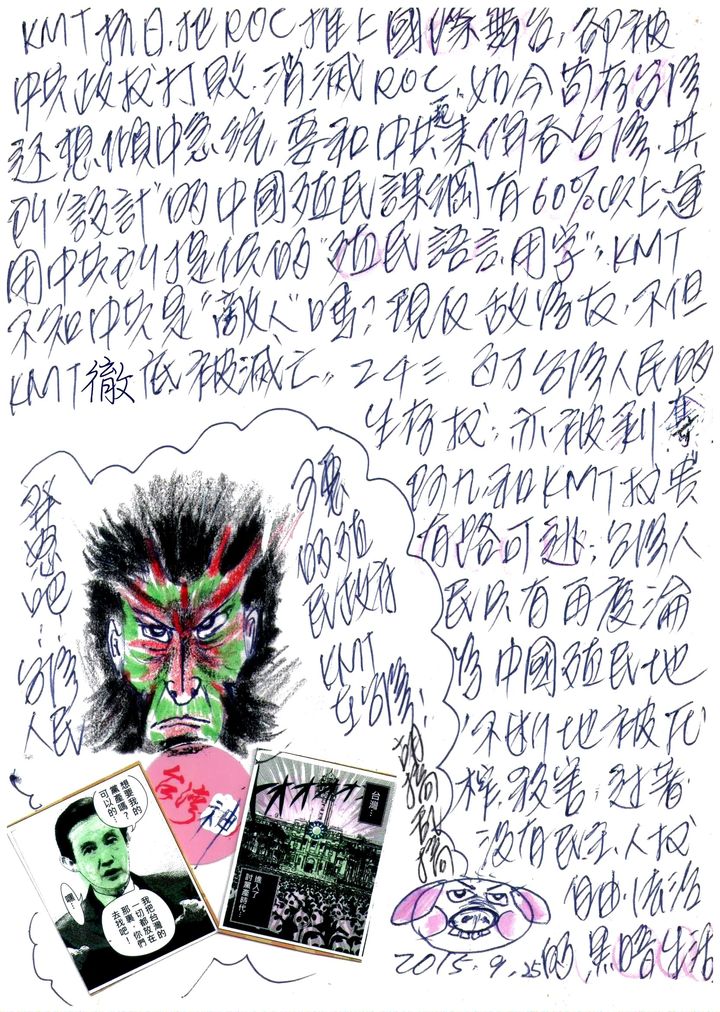 KMT抗日，把ROC推上國際舞台，卻被
中共政权打敗，消滅ROC，如今苟存台灣
还想傾中急統，要和中共起來併吞台灣，共
的中國殖民課綱有60%以上，運
用中共提供的“殖民語言，用字”，KMT
不知中共是“敵人”嗎？現
KMT徹底被滅亡，二千三百万台灣人民的
生存权，亦被剝奪
阿九和KMT权貴
有路可逃，台灣人
民只有再度淪
為中國殖民地
不断地被
殺害，过著
沒有民主，人权
自由，法治
的黑暗生活
2015.9.25
群怒吧…台灣
人民
可惡
的殖
民政府
KMT
在台灣
胡搞
亂搞
台灣神
想要我的
黨產嗎？
可以的…
嘿…
我把台灣的
一切都放在
那裏，你們
去找吧！
オオオオ
台灣…
進入了
討黨產時代…